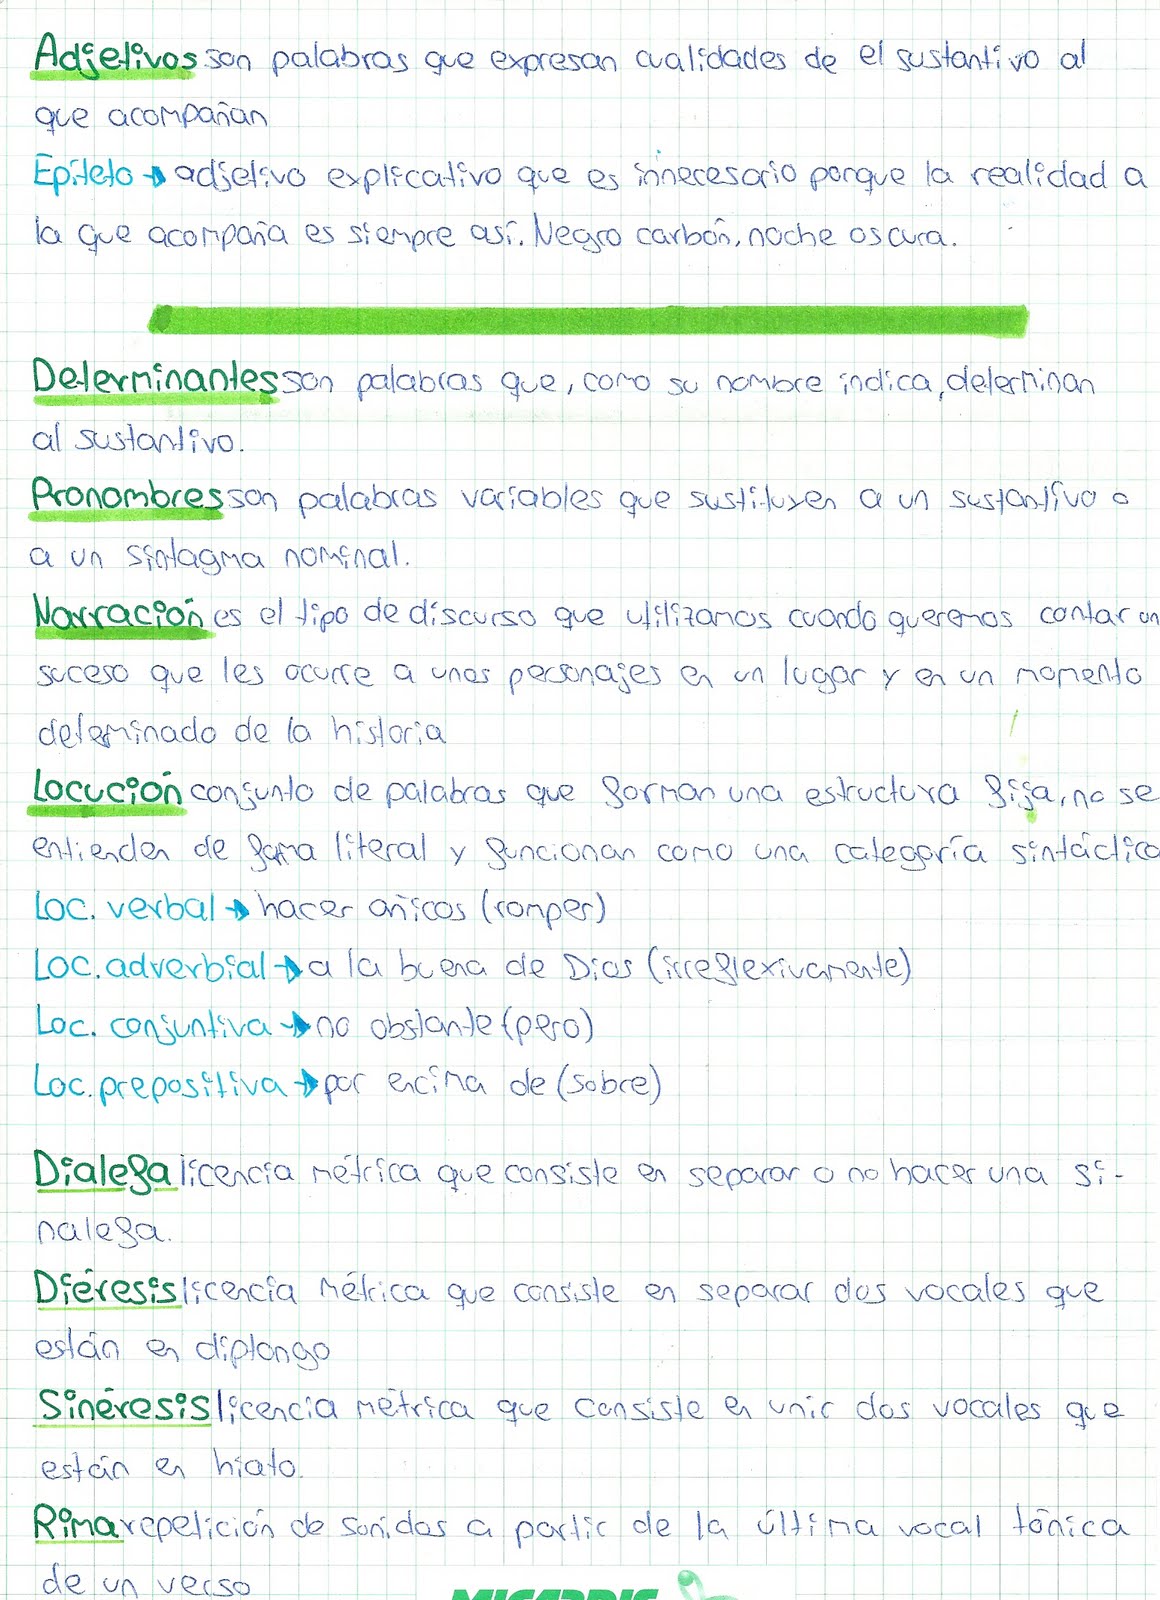 Adjetivos son palabras que expresan cualidades de el sustantivo al
que acompañan
Epíteto → adjetivo explicativo que es innecesario porque la realidad a
la que acompaña es siempre así. Negro carbón, noche oscura.
Determinantes son palabras que, como su nombre indica, determinan
al sustantivo.
Pronombres son palabras variables que sustituyen a un sustantivo o
a un sintagma nominal.
Narración es el tipo de discurso que utilizamos cuando queremos contar un
suceso que les ocurre a unos personajes en un lugar y en un momento
determinado de la historia
Locución conjunto de palabras que forman una estructura fija, no se
entienden de forma literal y funcionan como una categoría sintáctica
Loc. verbal → hacer añicos (romper)
Loc. adverbial → a la buena de Dios (irreflexivamente)
Loc. conjuntiva → no obstante (pero)
Loc. prepositiva → por encima de (sobre)
Dialefa licencia métrica que consiste en separar o no hacer una si-
nalefa.
Diéresis licencia métrica que consiste en separar dos vocales que
están en diptongo
Sinéresis licencia métrica que consiste en unir dos vocales que
están en hiato.
Rima repetición de sonidos a partir de la última vocal tónica
de un verso